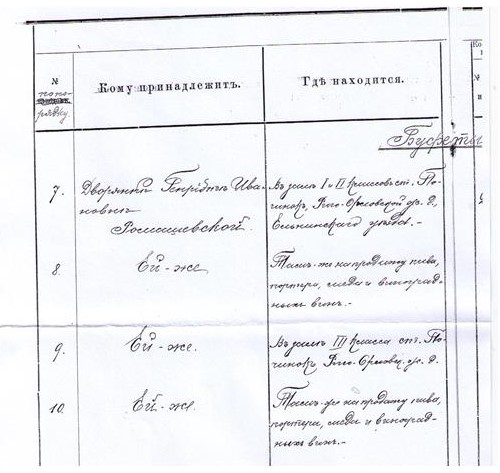 №
попо-
рядку.
Кому принадлежитъ.
Гдѣ находится.
Буфеты
7.
Дворянки Генріэты Ива-
новны
Ромишевской.
Въ залѣ I и II классовъ ст. По-
чинокъ, Риго-Орловской ж. д.,
Ельнинскаго уѣзда.-
8.
Ей-же
Тамъ-же на продажу пива,
портера, меда и виноград-
ныхъ винъ.-
9.
Ей-же.
Въ залѣ III класса ст. По-
чинокъ, Риго-Орловск. ж. д.
10.
Ей-же.
Тамъ-же на продажу пива,
портера, меда и виноград-
ныхъ винъ.-